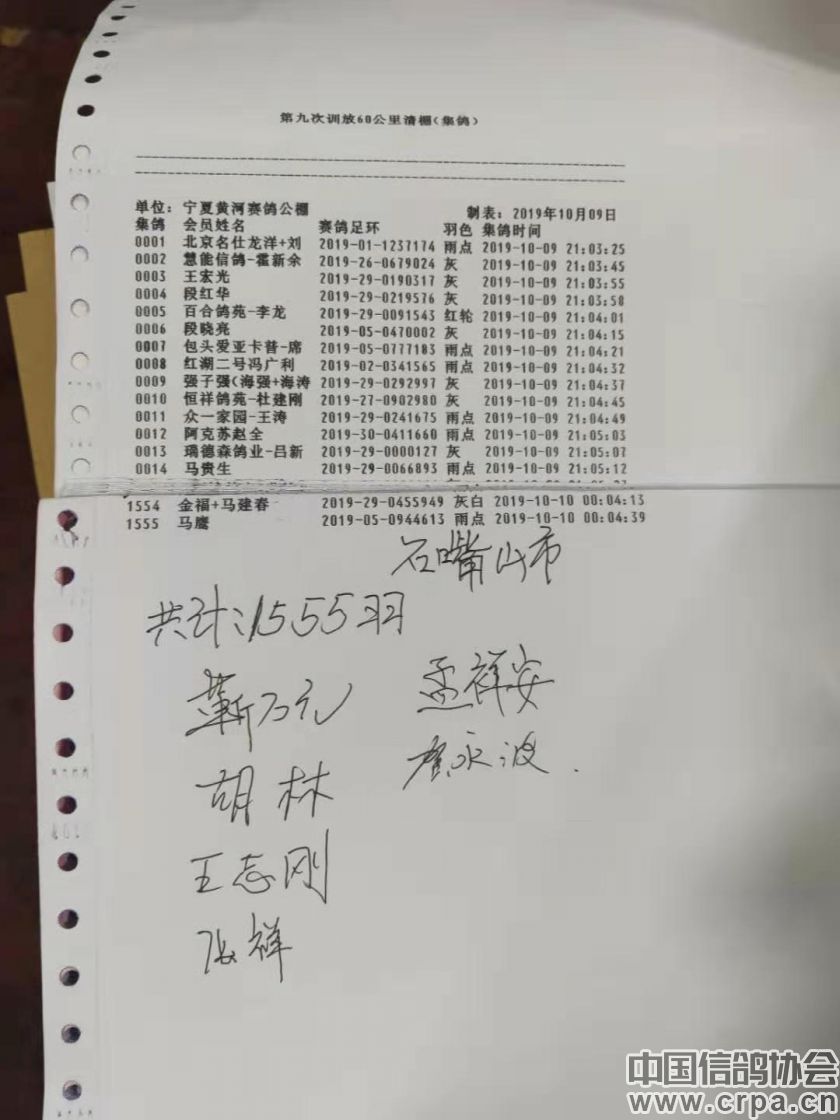 第九次训放60公里清棚(集鸽)
单位: 宁夏黄河赛鸽公棚 制表: 2019年10月09日
集鸽 会员姓名 赛鸽足环 羽色 集鸽时间
0001 北京名仕龙洋+刘 2019-01-1237174 雨点 2019-10-09 21:03:25
0002 慧能信鸽-霍新余 2019-26-0679024 灰 2019-10-09 21:03:45
0003 王宏光 2019-29-0190317 灰 2019-10-09 21:03:55
0004 段红华 2019-29-0219576 灰 2019-10-09 21:03:58
0005 百合鸽苑-李龙 2019-29-0091543 红轮 2019-10-09 21:04:01
0006 段晓亮 2019-05-0470002 灰 2019-10-09 21:04:15
0007 包头爱亚卡普-席 2019-05-0777183 雨点 2019-10-09 21:04:21
0008 红湖二号冯广利 2019-02-0341565 雨点 2019-10-09 21:04:32
0009 强子强(海强+海涛 2019-29-0292997 灰 2019-10-09 21:04:37
0010 恒祥鸽苑-杜建刚 2019-27-0902980 灰 2019-10-09 21:04:45
0011 众一家园-王涛 2019-29-0241675 雨点 2019-10-09 21:04:49
0012 阿克苏赵全 2019-30-0411660 雨点 2019-10-09 21:05:03
0013 瑞德森鸽业-吕新 2019-29-0000127 灰 2019-10-09 21:05:07
0014 马贵生 2019-29-0066893 雨点 2019-10-09 21:05:12
1554 金福+马建春 2019-29-0455949 灰白 2019-10-10 00:04:13
1555 马鹰 2019-05-0944613 雨点 2019-10-10 00:04:39
石嘴山市
共计:1555羽
靳万元 孟祥安
胡林 永波.
王志刚
张祥
中国信鸽协会
www.crpa.cn